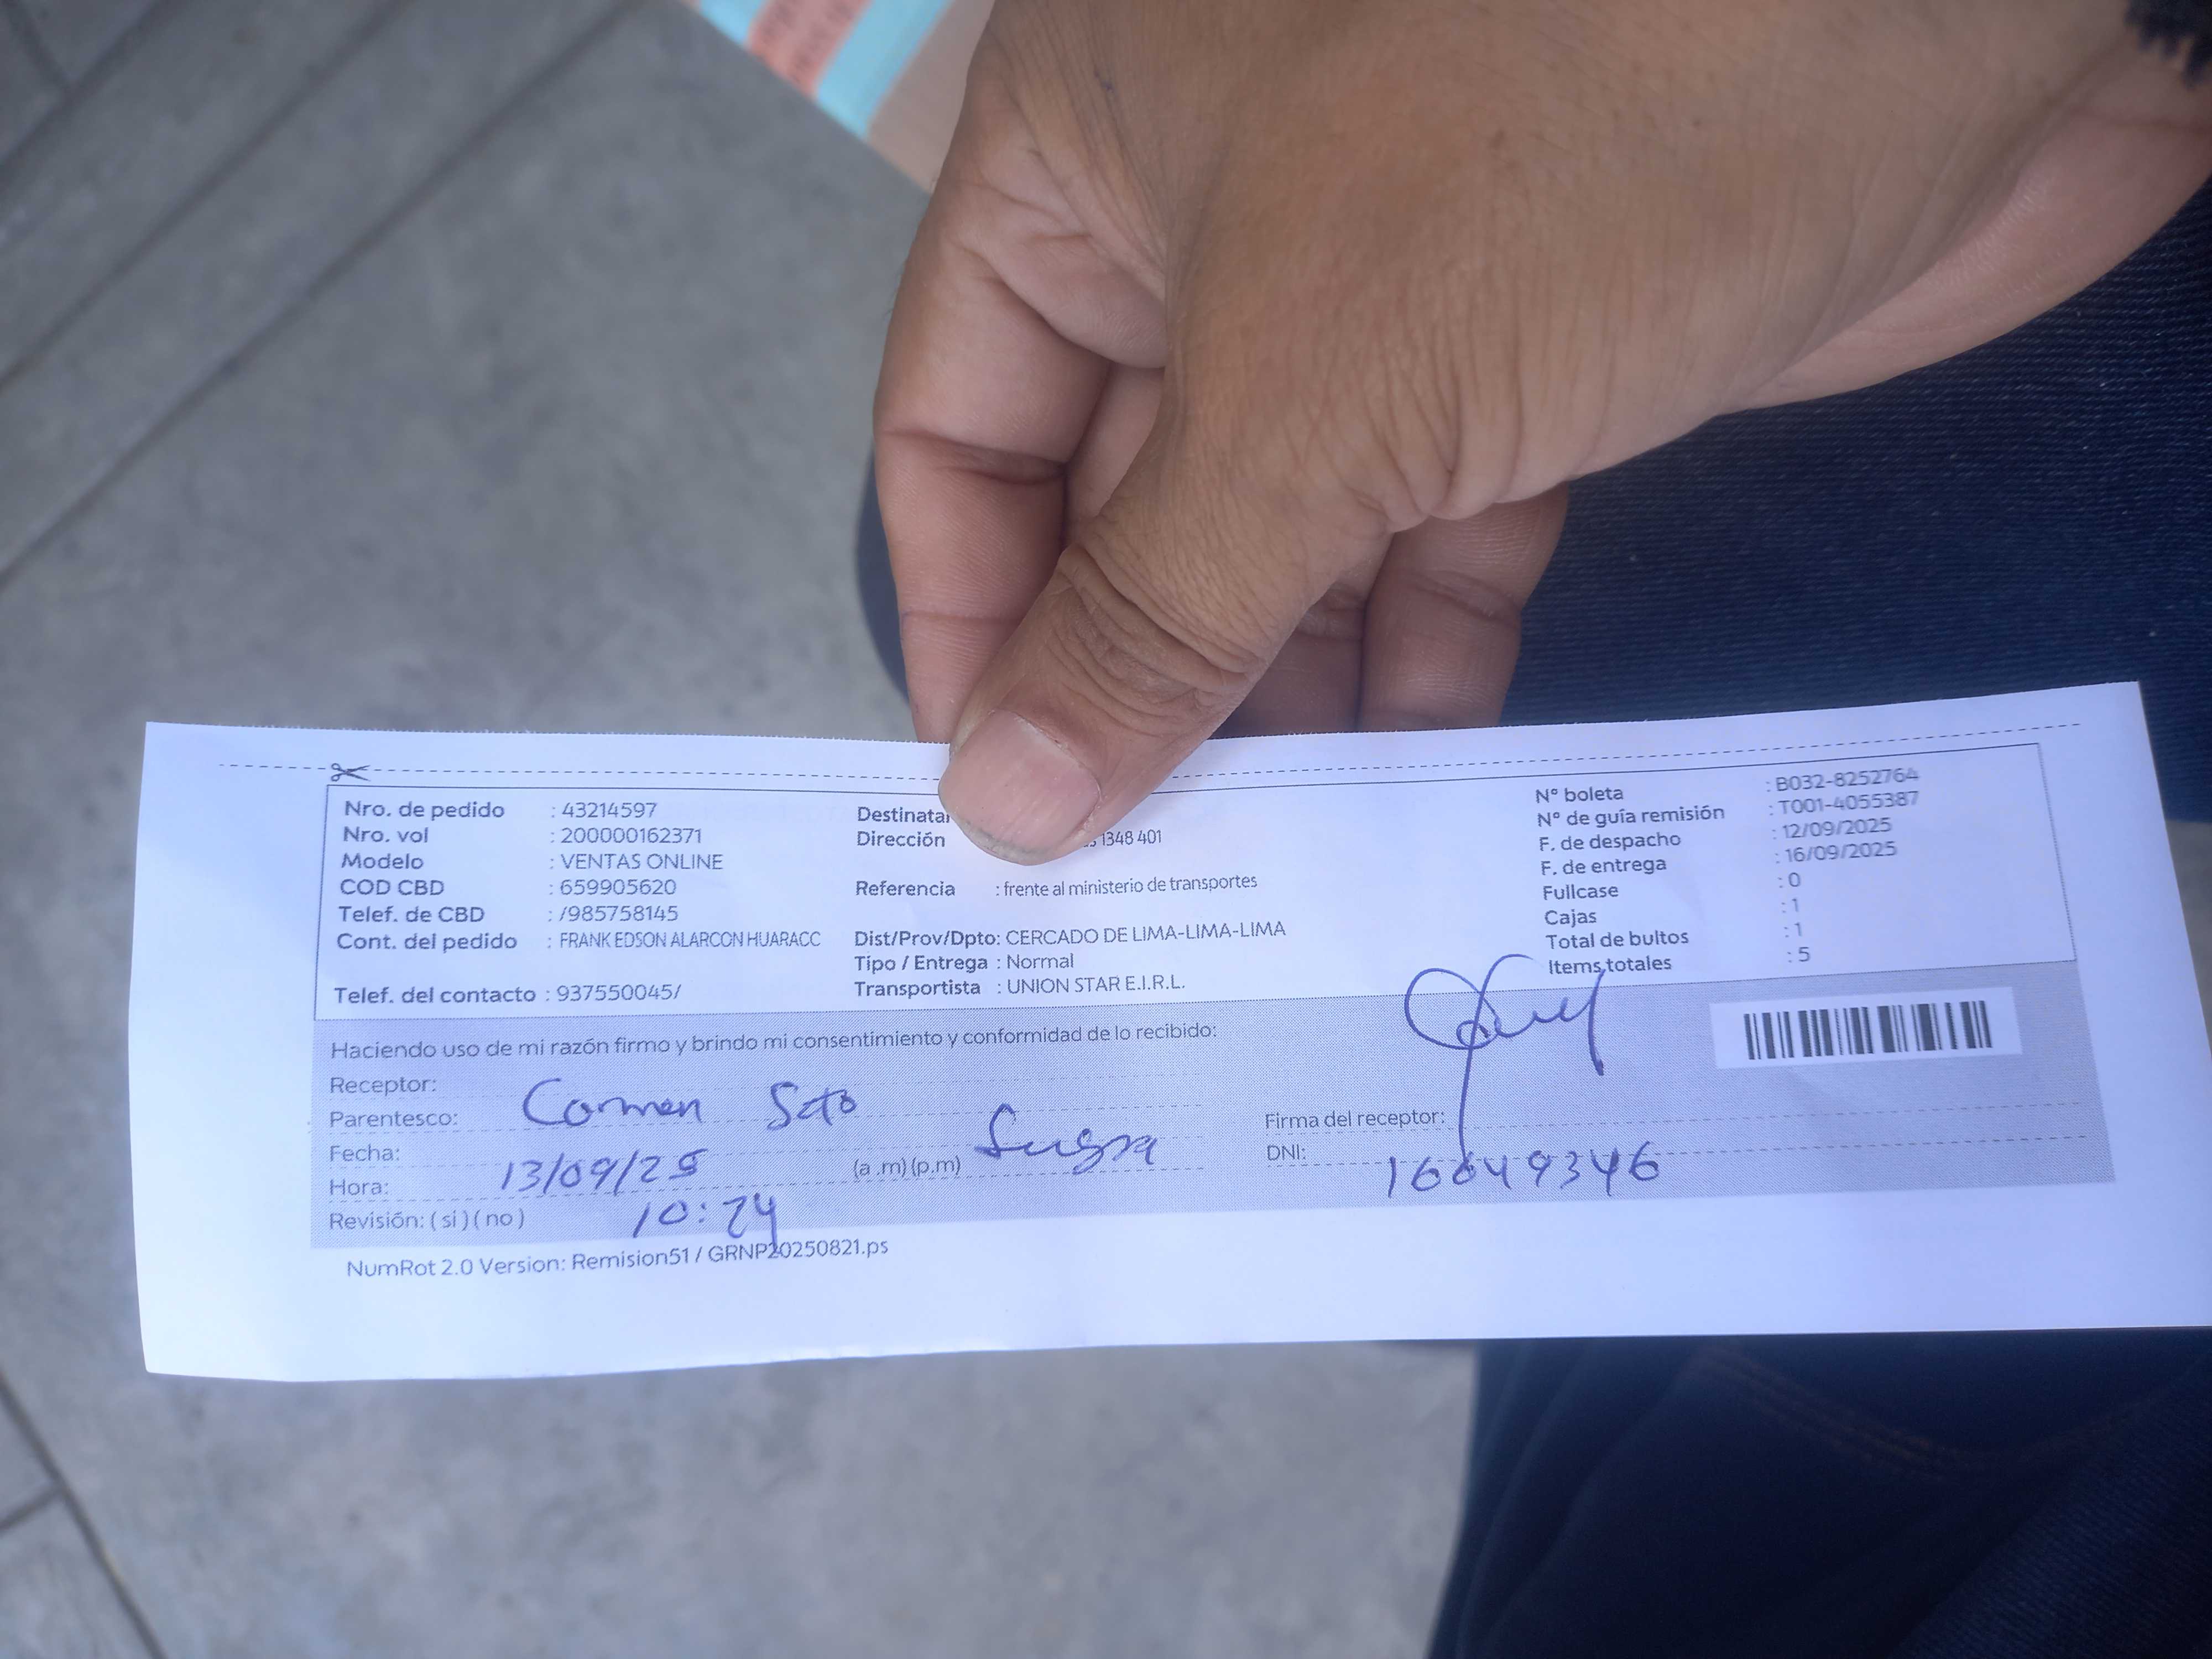 Nro. de pedido : 43214597
Nro. vol : 200000162371
Modelo : VENTAS ONLINE
COD CBD : 659905620
Telef. de CBD : /985758145
Cont. del pedido : FRANK EDSON ALARCON HUARACC
Telef. del contacto : 937550045/
Destinatar
Dirección 1348 401
Referencia : frente al ministerio de transportes
Dist/Prov/Dpto: CERCADO DE LIMA-LIMA-LIMA
Tipo / Entrega : Normal
Transportista : UNION STAR E.I.R.L.
N° boleta : B032-8252764
N° de guía remisión : T001-4055387
F. de despacho : 12/09/2025
F. de entrega : 16/09/2025
Fullcase : 0
Cajas : 1
Total de bultos : 1
Items totales : 5
Haciendo uso de mi razón firmo y brindo mi consentimiento y conformidad de lo recibido:
Receptor: Carmen Soto
Parentesco: Suegra
Fecha: 13/09/25
Hora: 10:24 (a .m) (p.m)
Revisión: ( si ) ( no )
Firma del receptor:
DNI: 16049346
NumRot 2.0 Version: Remision51 / GRNP20250821.ps